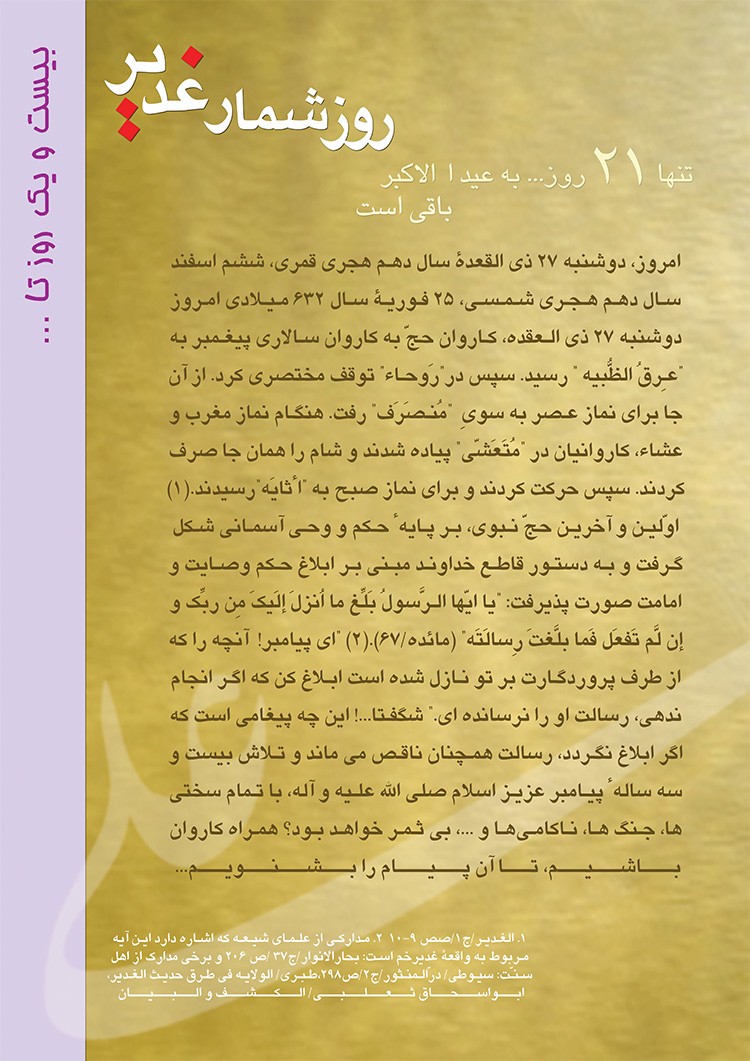 بیست و یک روز تا ...
روزشمار غدیر
تنها ۲۱ روز... به عید ا الاکبر
باقی است
امروز، دوشنبه ۲۷ ذی القعدۀ سال دهم هجری قمری، ششم اسفند
سال دهم هجری شمسی، ۲۵ فوریۀ سال ۶۳۲ میلادی امروز
دوشنبه ۲۷ ذی العقده، کاروان حجّ به کاروان سالاری پیغمبر به
"عِرقُ الظُّبیه " رسید. سپس در"رَوحاء" توقف مختصری کرد. از آن
جا برای نماز عصر به سویِ "مُنصَرَف" رفت. هنگام نماز مغرب و
عشاء، کاروانیان در "مُتَعَشّی" پیاده شدند و شام را همان جا صرف
کردند. سپس حرکت کردند و برای نماز صبح به "اُثایَه"رسیدند.(۱)
اوّلین و آخرین حجّ نبوی، بر پایهٔ حکم و وحی آسمانی شکل
گرفت و به دستور قاطع خداوند مبنی بر ابلاغ حکم وصایت و
امامت صورت پذیرفت: "یا ایّها الرَّسولُ بَلِّغ ما اُنزلَ إلَیکَ مِن ربِّک و
إن لَّم تَفعَل فَما بلَّغتَ رِسالَتَه" (مائده/۶۷).(۲) "ای پیامبر! آنچه را که
از طرف پروردگارت بر تو نازل شده است ابلاغ کن که اگر انجام
ندهی، رسالت او را نرسانده ای." شگفتا...! این چه پیغامی است که
اگر ابلاغ نگردد، رسالت همچنان ناقص می ماند و تلاش بیست و
سه سالهٔ پیامبر عزیز اسلام صلی الله علیه و آله، با تمام سختی
ها، جنگ ها، ناکامی‌ها و ...، بی ثمر خواهد بود؟ همراه کاروان
باشیم، تا آن پیام را بشنویم...
۱. الغدیر/ج۱/صص ۹-۱۰ ۲. مدارکی از علمای شیعه که اشاره دارد این آیه
مربوط به واقعۀ غدیرخم است: بحارالانوار/ج۳۷ /ص ۲۰۶ و برخی مدارک از اهل
سنّت: سیوطی/ درّالمنثور/ج۲/ص۲۹۸،طبری/ الولایه فی طرق حدیث الغدیر،
ابواسحاق ثعلبی/ الکشف و البیان